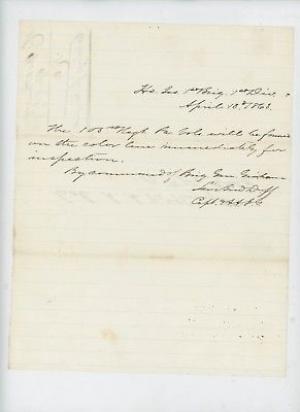 Hd Qrs 1st Brig. 1st Div.
April 13th 1863.
The 105th Regt Pa Vols will be formed
on the color line immediately for
inspection.
By command of Brig Gen Graham
Capt & A A G